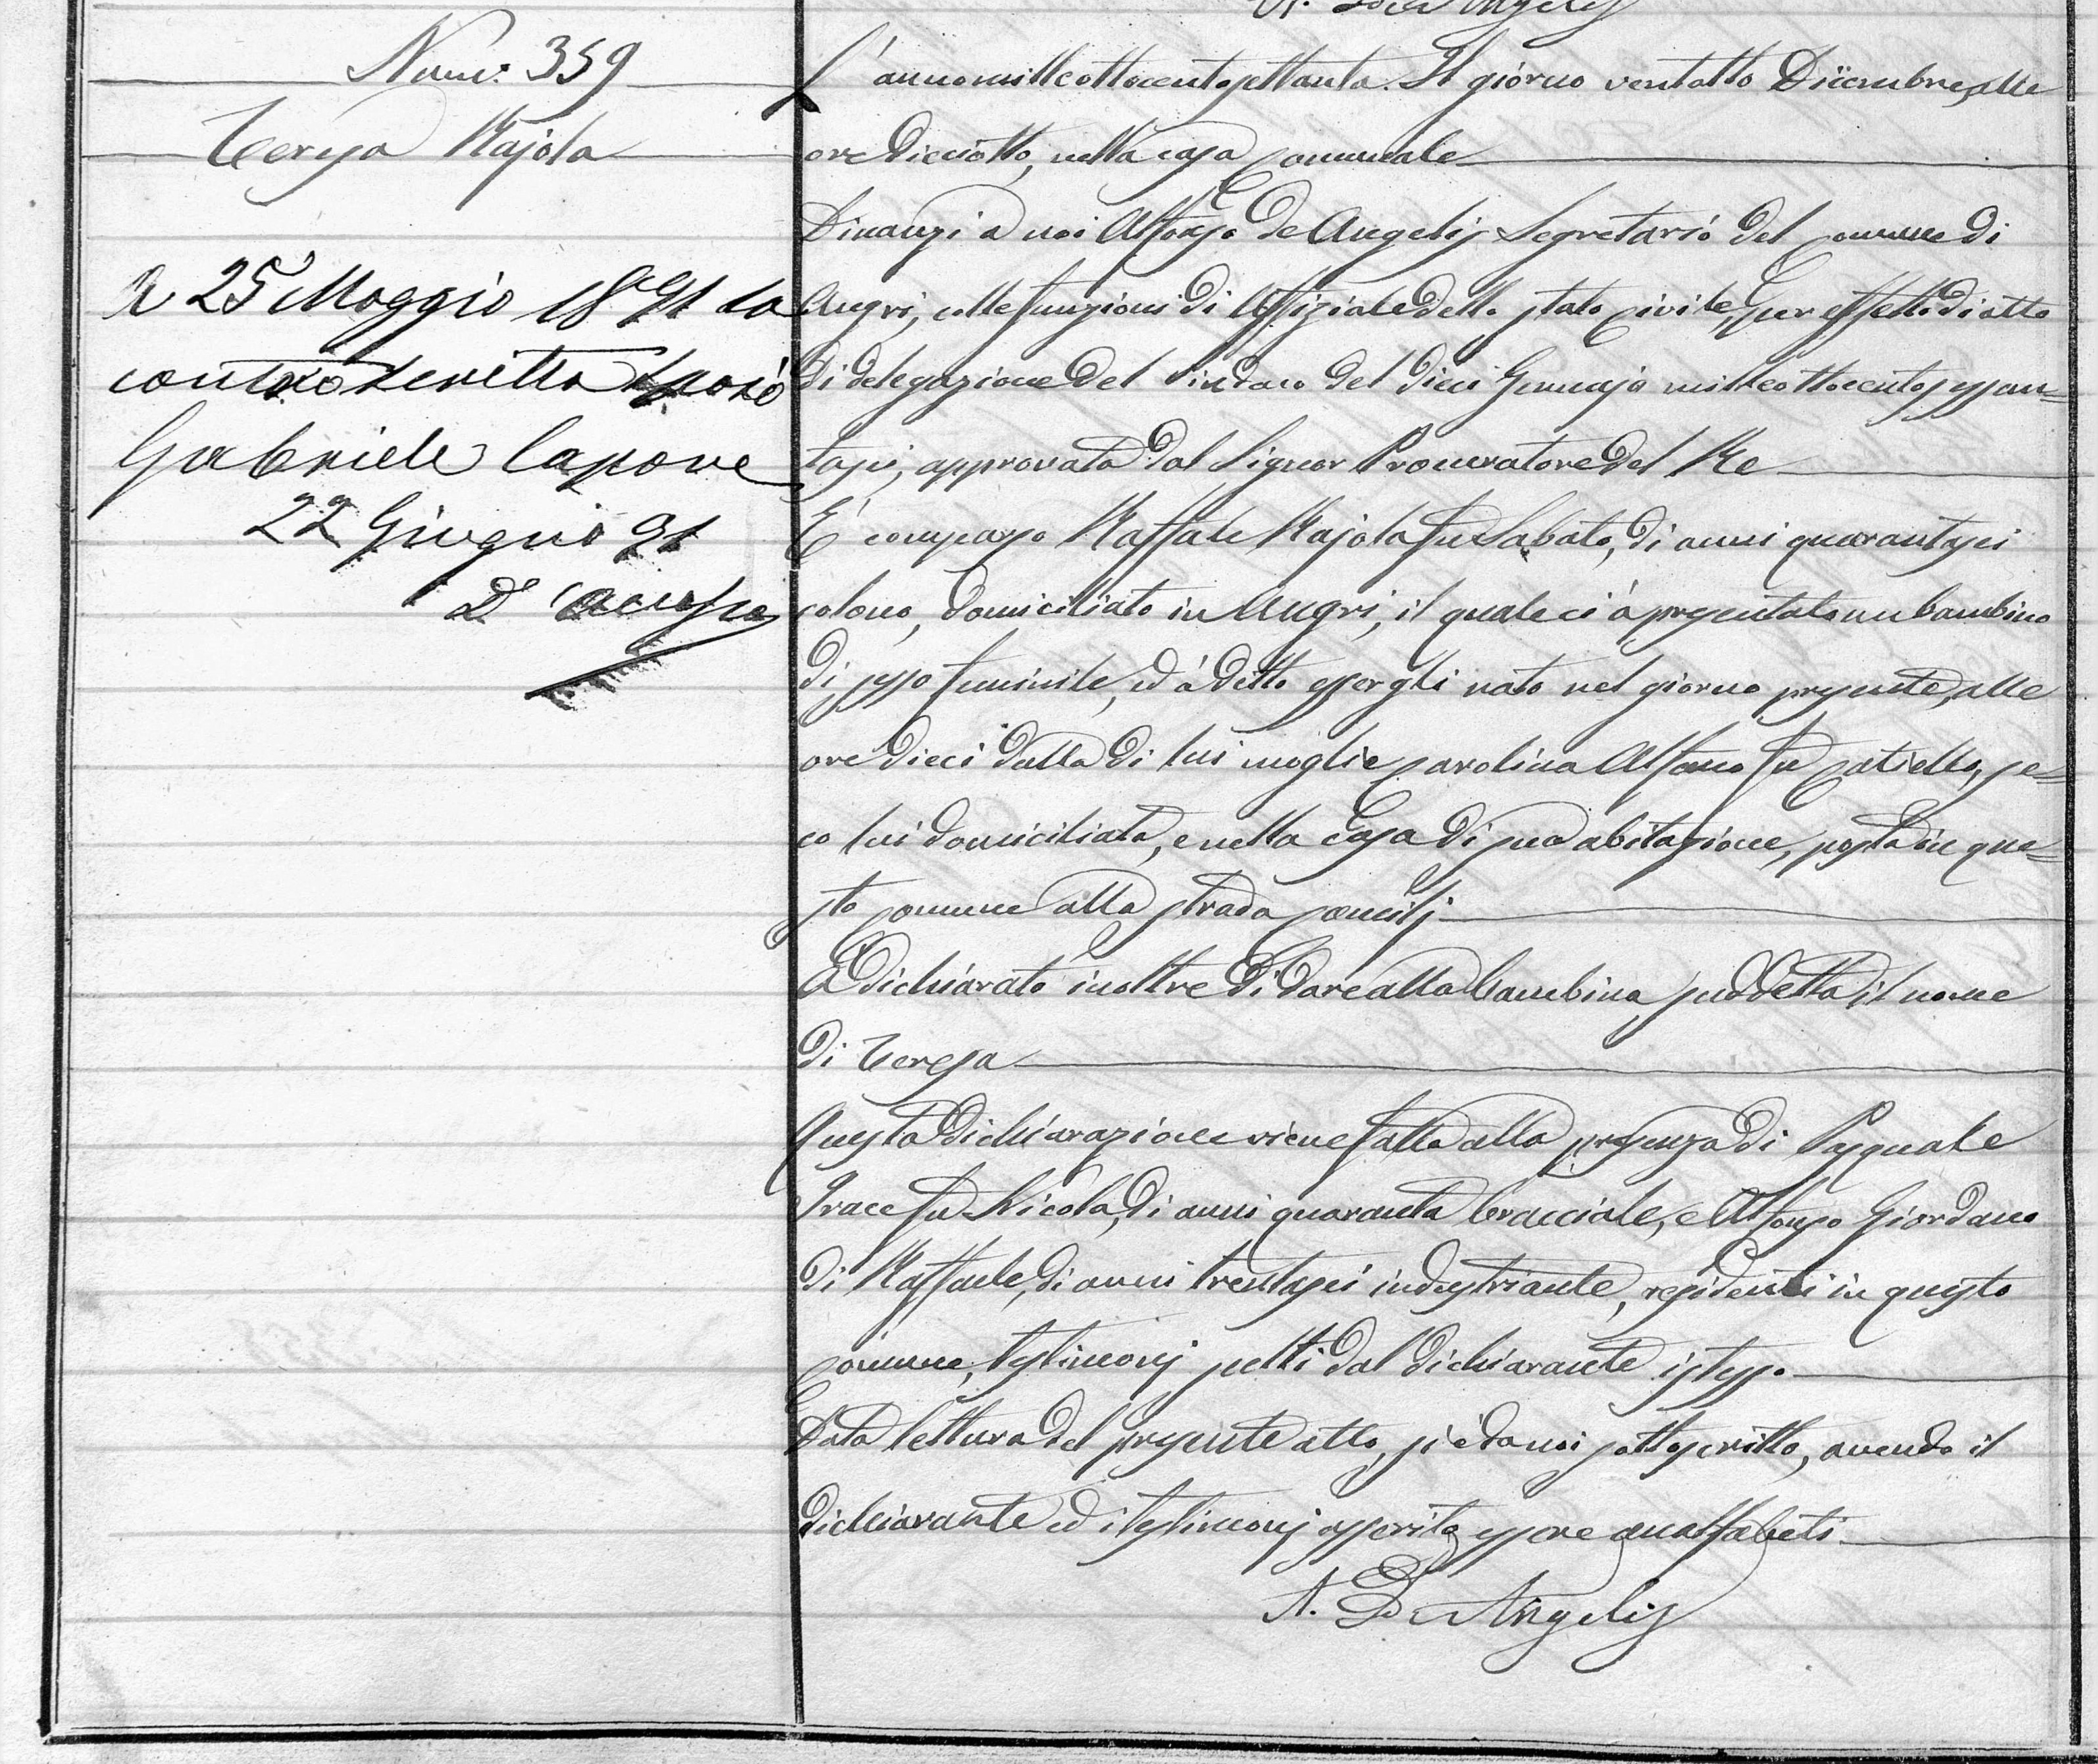 A. De Angelis
Num: 359
Teresa Rajola
A 25 Maggio 1891 la
controscritta sposò
Gabriele Capone
22 Giugno 91
L'anno mille ottocento settanta. Il giorno ventotto Dicembre, alle
ore dieciotto, nella casa Comunale
Dinanzi a noi Alfonso De Angelis Segretario del Comune di
Angri, colle funzioni di Uffiziale dello stato Civile, per effetto di atto
di delegazione del Sindaco del dieci Gennajo mille ottocento sessan=
tasei, approvata dal Signor Procuratore del Re
E' comparso Raffaele Rajola fu Sabato, di anni quarantasei
colono, domiciliato in Angri, il quale ci à presentato un bambino
di sesso feminile, ed à detto essergli nato nel giorno presente, alle
ore dieci dalla di lui moglie Carolina Alfano fu Catiello, se=
co lui domiciliata, e nella Casa di sua abitazione, posta in que=
sto Comune alla strada
À dichiarato inoltre di dare alla bambina suddetta il nome
di Teresa
Questa dichiarazione viene fatta alla presenza di Pasquale
Irace fu Nicola, di anni quaranta bracciale, e Alfonso Giordano
di Raffaele, di anni trentasei industriante, residenti in questo
Comune, testimonj scelti dal dichiarante istesso
Data lettura del presente atto, si è da noi sottoscritto, avendo il
dichiarante ed i testimonj asserito essere analfabeti
A. De Angelis